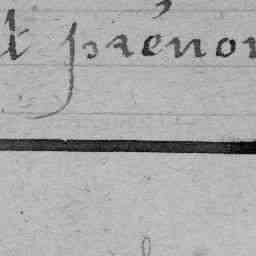 t prénom